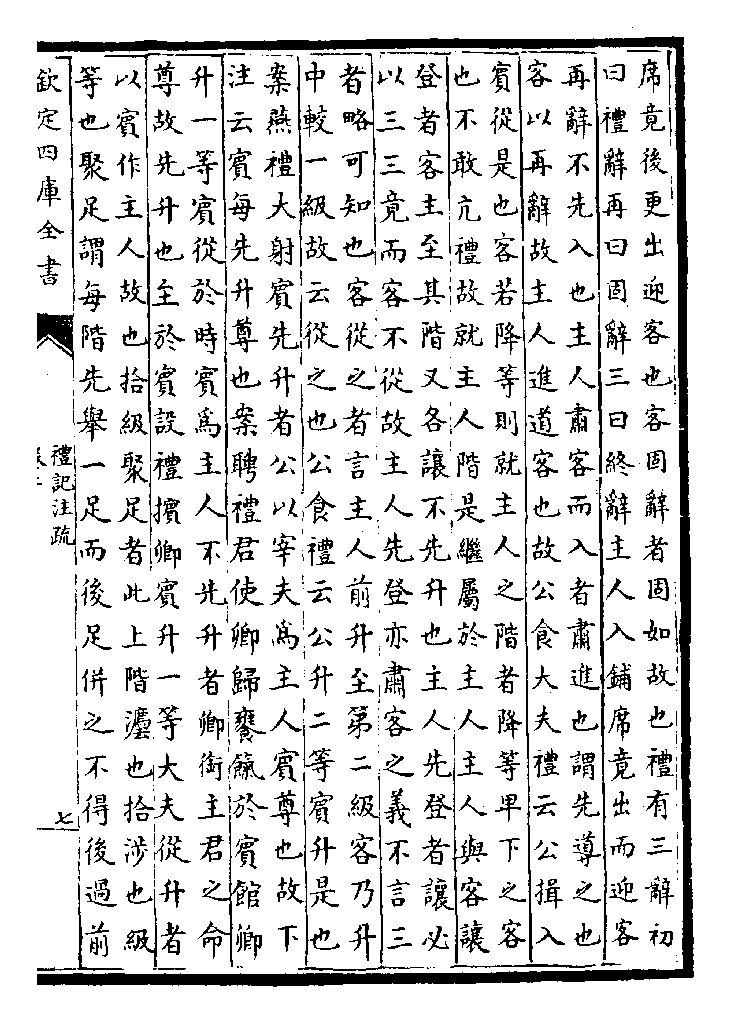 席竟後更出迎客也客固辭者固如故也禮有三辭初
曰禮辭再曰固辭三曰終辭主人入鋪席竟出而迎客
再辭不先入也主人肅客而入者肅進也謂先導之也
客以再辭故主人進道客也故公食大夫禮云公揖入
賓從是也客若降等則就主人之階者降等卑下之客
也不敢亢禮故就主人階是繼屬於主人主人與客讓
登者客主至其階又各讓不先升也主人先登者讓必
以三三竟而客不從故主人先登亦肅客之義不言三
者略可知也客從之者言主人前升至第二級客乃升
中較一級故云從之也公食禮云公升二等賓升是也
案燕禮大射賓先升者公以宰夫為主人賓尊也故下
注云賓每先升尊也案聘禮君使卿歸饔餼於賓館卿
升一等賓從於時賓為主人不先升者卿銜主君之命
尊故先升也至於賓設禮擯卿賓升一等大夫從升者
以賓作主人故也拾級聚足者此上階灋也拾涉也級
等也聚足謂每階先舉一足而後足併之不得後過前
欽定四庫全書
禮記注疏
七